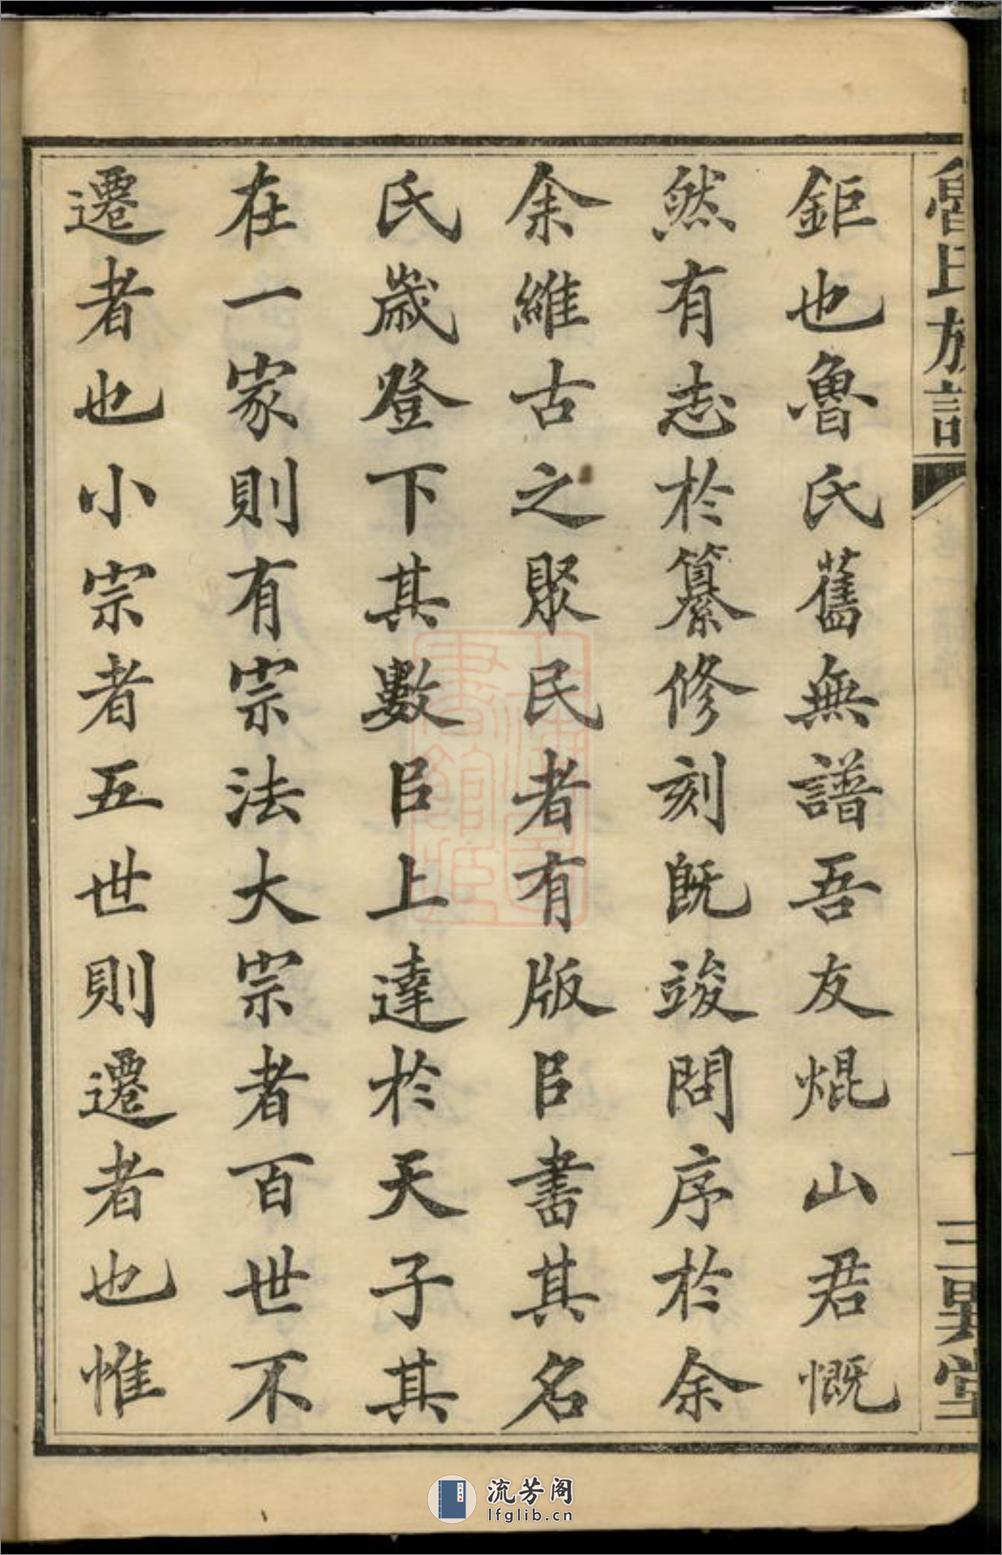 魯氏族譜
三異堂
鉅也魯氏舊無譜吾友焜山君慨
然有志於纂修刻既竣問序於余
余維古之聚民者有版㠯書其名
氏歲登下其數㠯上達於天子其
在一家則有宗法大宗者百世不
遷者也小宗者五世則遷者也惟
流芳阁
lfglib.cn